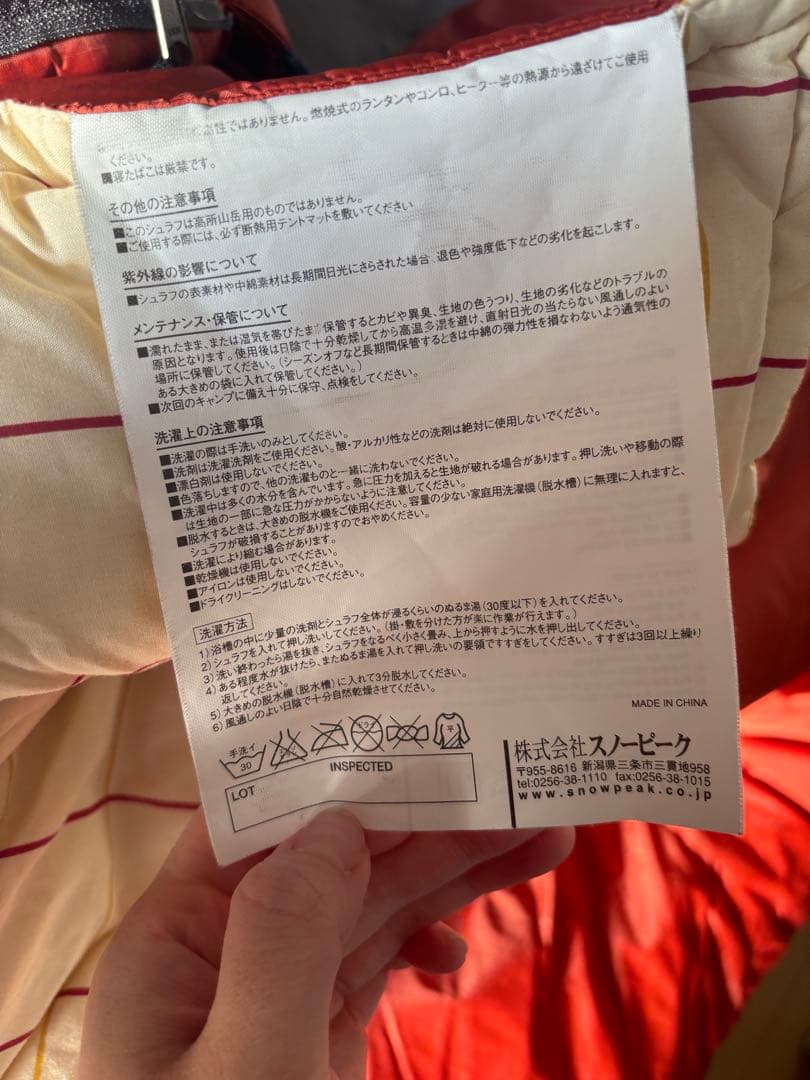 性ではありません。燃焼式のランタンやコンロ、ヒーター等の熱源から遠ざけてご使用
ください。
■寝たばこは厳禁です。
その他の注意事項
■このシュラフは高所山岳用のものではありません。
■ご使用する際には、必ず断熱用テントマットを敷いてください
紫外線の影響について
■シュラフの表素材や中綿素材は長期間日光にさらされた場合、退色や強度低下などの劣化を起こします。
メンテナンス・保管について
■濡れたまま、または湿気を帯びたまま保管するとカビや異臭、生地の色うつり、生地の劣化などのトラブルの
原因となります。使用後は日陰で十分乾燥してから高温多湿を避け、直射日光の当たらない風通しのよい
場所に保管してください。(シーズンオフなど長期間保管するときは中綿の弾力性を損なわないよう通気性の
ある大きめの袋に入れて保管してください。)
■次回のキャンプに備え十分に保守、点検をしてください。
洗濯上の注意事項
■洗濯の際は手洗いのみとしてください。
■洗剤は洗濯洗剤をご使用ください。酸・アルカリ性などの洗剤は絶対に使用しないでください。
■漂白剤は使用しないでください。
■色落ちしますので、他の洗濯ものと一緒に洗わないでください。
■洗濯中は多くの水分を含んでいます。急に圧力を加えると生地が破れる場合があります。押し洗いや移動の際
は生地の一部に急な圧力がかからないように注意してください。
■脱水するときは、大きめの脱水機をご使用ください。容量の少ない家庭用洗濯機(脱水槽)に無理に入れますと、
シュラフが破損することがありますのでおやめください。
■洗濯により縮む場合があります。
■乾燥機は使用しないでください。
■アイロンは使用しないでください。
■ドライクリーニングはしないでください。
洗濯方法
1)浴槽の中に少量の洗剤とシュラフ全体が浸るくらいのぬるま湯(30度以下)を入れてください。
2)シュラフを入れて押し洗いしてください。(掛・敷を分けた方が楽に作業が行えます。)
3)洗い終わったら湯を抜き、シュラフをなるべく小さく畳み、上から押すように水を押し出してください。
4)ある程度水が抜けたら、またぬるま湯を入れて押し洗いの要領ですすぎをしてください。すすぎは3回以上繰り
返してください。
5)大きめの脱水機(脱水槽)に入れて3分脱水してください。
6)風通しのよい日陰で十分自然乾燥させてください。
MADE IN CHINA
手洗イ
30
エンソ
ドライ
平
INSPECTED
LOT
株式会社スノーピーク
〒955-8616 新潟県三条市三貫地958
tel:0256-38-1110 fax:0256-38-1015
www.snowpeak.co.jp